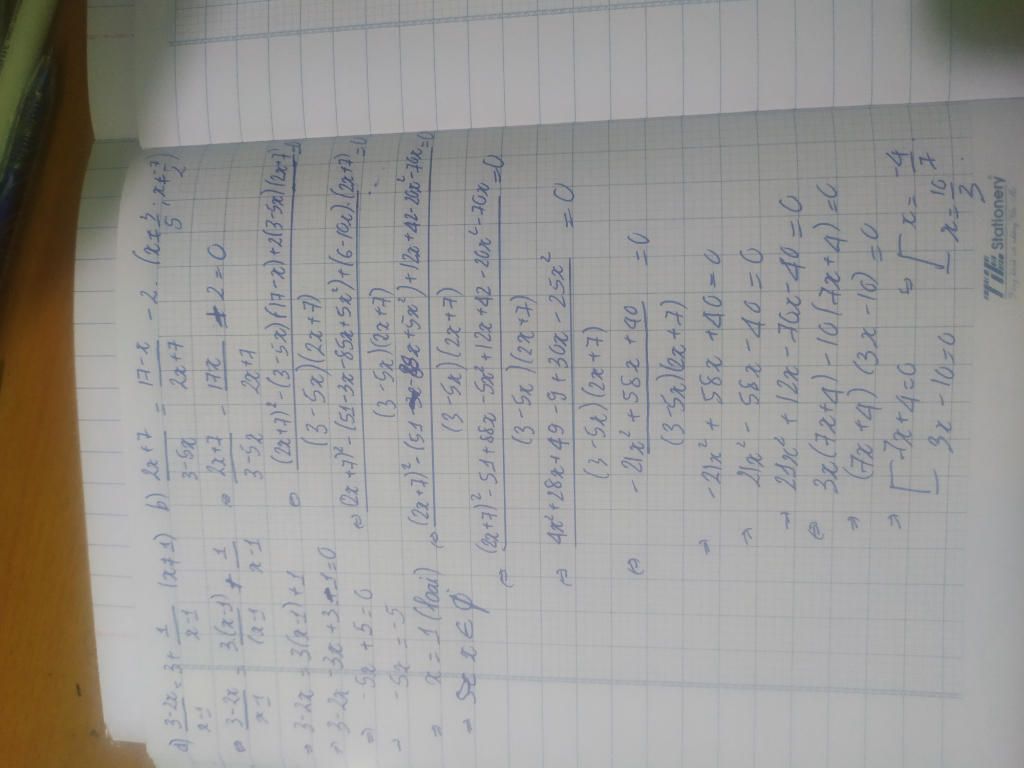 a) \frac{3-2x}{x-1} = 3 + \frac{1}{x-1} (x≠1)
⇔ \frac{3-2x}{x-1} = \frac{3(x-1)}{(x-1} + \frac{1}{x-1}
⇒ 3-2x = 3(x-1)+1
⇒ 3-2x-3x+3+1=0
⇒ -5x+5=0
→ -5x=-5
⇒ x=1 (loại)
→ x ∈ ∅
b) \frac{2x+7}{3-5x} = \frac{17-x}{2x+7} - 2. (x≠\frac{3}{5}; x≠\frac{-7}{2})
⇔ \frac{2x+7}{3-5x} - \frac{17x}{2x+7} + 2 = 0
⇔ \frac{(2x+7)²-(3-5x)(17-x)+2(3-5x)(2x+7)}{(3-5x)(2x+7)} =0
⇔ \frac{(2x+7)²-(51-3x-85x+5x²)+(6-10x).(2x+7)}{(3-5x)(2x+7)} =0
⇔ \frac{(2x+7)²-(51-88x+5x²)+12x+42-20x²-70x}{(3-5x)(2x+7)} =0
⇔ \frac{(2x+7)²-51+88x-5x²+12x+42-20x²-70x}{(3-5x)(2x+7)} =0
⇔ \frac{4x²+28x+49-9+30x-25x²}{(3-5x)(2x+7)} =0
⇔ \frac{-21x²+58x+40}{(3-5x)(2x+7)} =0
⇒ -21x²+58x+40=0
⇒ 21x²-58x-40=0
→ 21x²+12x-70x-40=0
⇔ 3x(7x+4)-10(7x+4)=0
⇒ (7x+4)(3x-10)=0
⇒ 7x+4=0 x=\frac{-4}{7}
3x-10=0 x=\frac{10}{3}
TIE Stationery